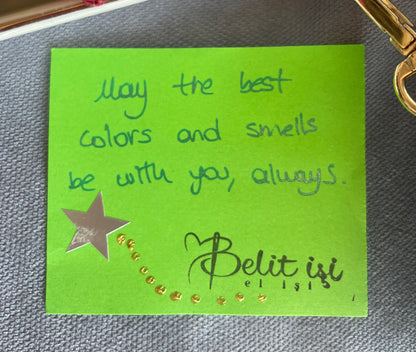 May the best
colors and smells
be with you, always.
Belit işi
el işi